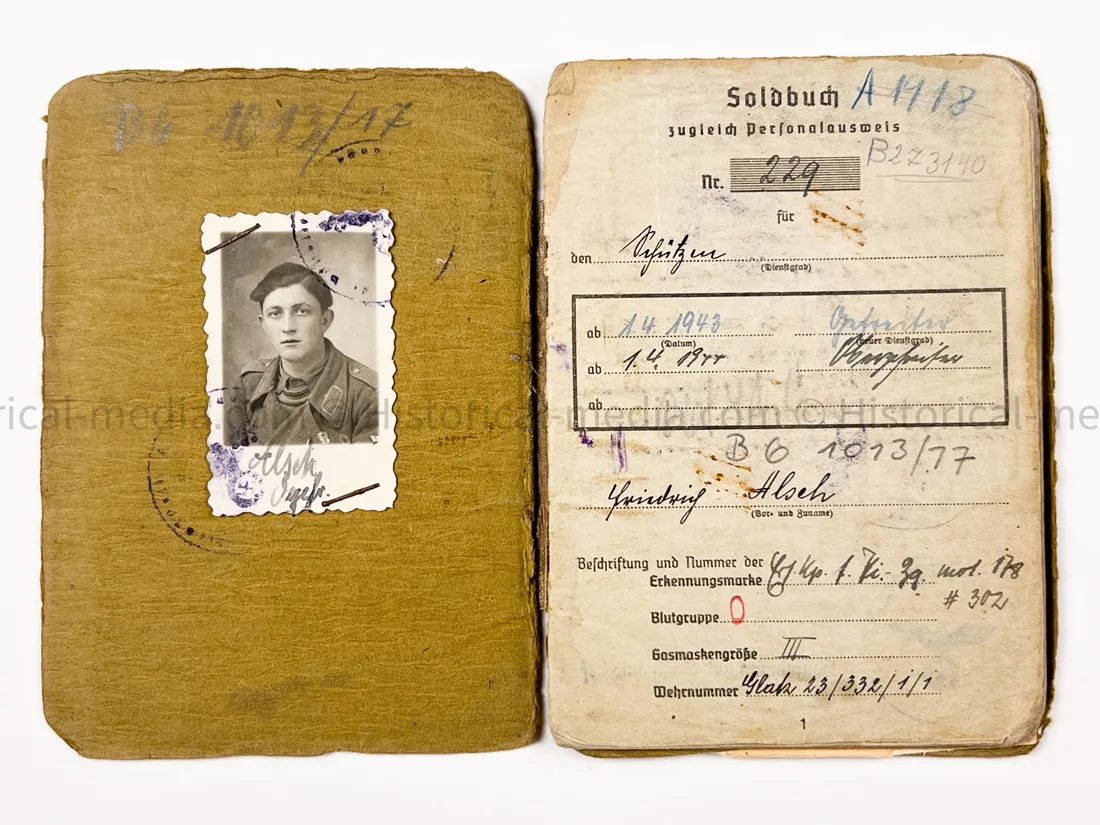 B6 1013/17
Alsch
Ogefr.
Soldbuch A 1918
zugleich Personalausweis
B273140
Nr. 229
für
den Schützen
(Dienstgrad)
ab 1.4.1943 Gefreiter
(Datum) (neuer Dienstgrad)
ab 1.4.1944 Obergefreiter
ab
B6 1013/77
Friedrich Alsch
(Vor- und Zuname)
Beschriftung und Nummer der
Erkennungsmarke Kp. f. Pi.-Zg. mot. 178
# 302
Blutgruppe O
Gasmaskengröße III
Wehrnummer Glatz 23/332/1/1
1
Historical-media.com © Historical-media.com © Historical-me